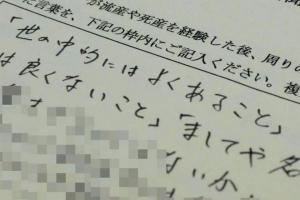 が流産や死産を経験した後、周りの
た言葉を、下記の枠内にご記入ください。複
「世の中的にはよくあること」
は良くないこと」「ましてや名
ないか